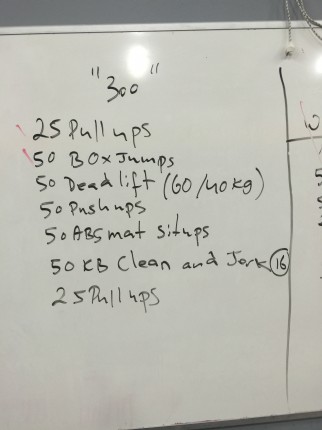 "300"
25 Pull ups
50 BOx Jumps
50 Deadlift (60/40kg)
50 Pushups
50 ABSmat Situps
50 KB Clean and Jerk 16
25 Pull ups